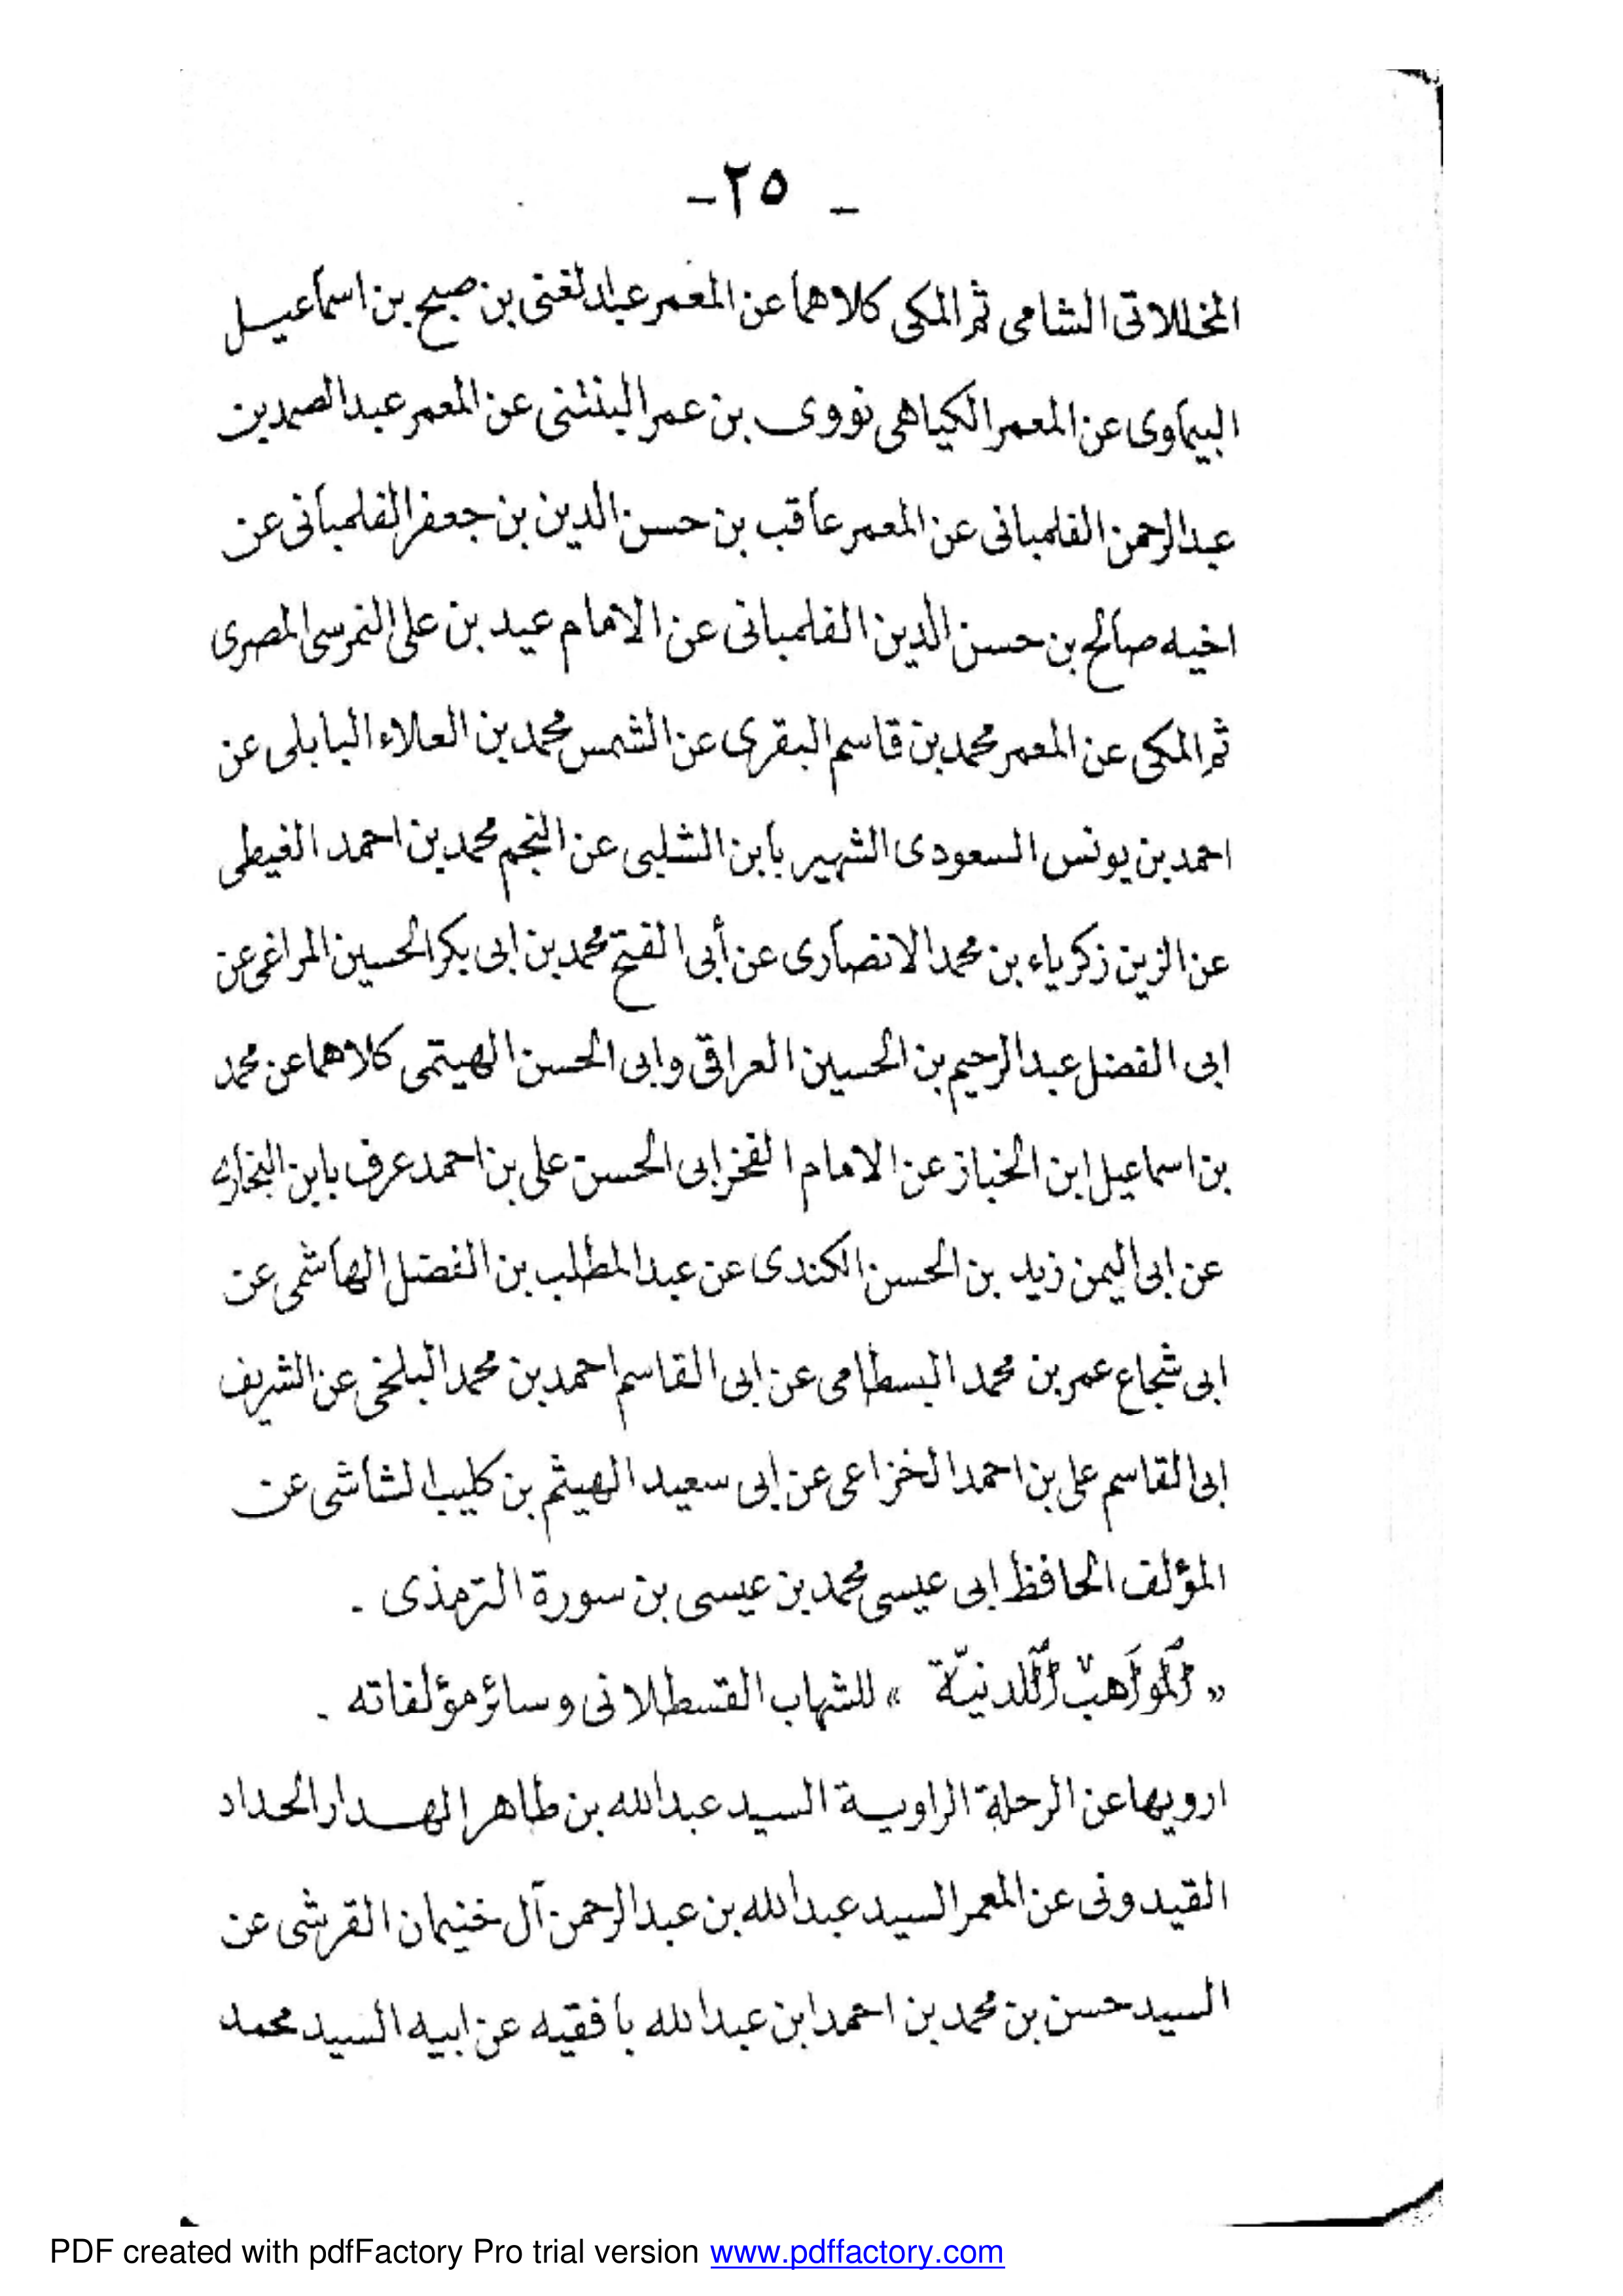 - ٢٥ -
المخللاتى الشامى ثم المكى كلاهما عن المعمر عبد لغنى بن صبح بن اسماعيل
البيماوى عن المعمر الكياهى نووى بن عمر البنتنى عن المعمر عبد الصمد بن
عبد الرحمن الفلمبانى عن المعمر عاقب بن حسن الدين بن جعفر الفلمبانى عن
اخيه صالح بن حسن الدين الفلمبانى عن الامام عيد بن على النمرسى المصرى
ثم المكى عن المعمر محمد بن قاسم البقرى عن الشمس محمد بن العلاء البابلى عن
احمد بن يونس السعودى الشهير بابن الشلبى عن النجم محمد بن احمد الغيطى
عن الزين زكرياء بن محمد الانصارى عن أبى الفتح محمد بن ابى بكر الحسين المراغى عن
ابى الفضل عبد الرحيم بن الحسين العراقى وابى الحسن الهيتمى كلاهما عن محمد
بن اسماعيل ابن الخباز عن الامام الفخر ابى الحسن على بن احمد عرف بابن البخارى
عن ابى اليمن زيد بن الحسن الكندى عن عبد المطلب بن الفضل الهاشمى عن
ابى شجاع عمر بن محمد البسطامى عن ابى القاسم احمد بن محمد البلخى عن الشريف
ابى القاسم على بن احمد الخزاعى عن ابى سعيد الهيثم بن كليب الشاشى عن
المؤلف الحافظ ابى عيسى محمد بن عيسى بن سورة الترمذى .
« اَلْمَوَاهِبُ اَللَّدنيّة » للشهاب القسطلانى وسائر مؤلفاته .
ارويها عن الرحلة الراوية السيد عبد الله بن طاهر الهدار الحداد
القيدونى عن المعمر السيد عبد الله بن عبد الرحمن آل خنيمان القرشى عن
السيد حسن بن محمد بن احمد ابن عبد الله بافقيه عن ابيه السيد محمد
PDF created with pdfFactory Pro trial version www.pdffactory.com